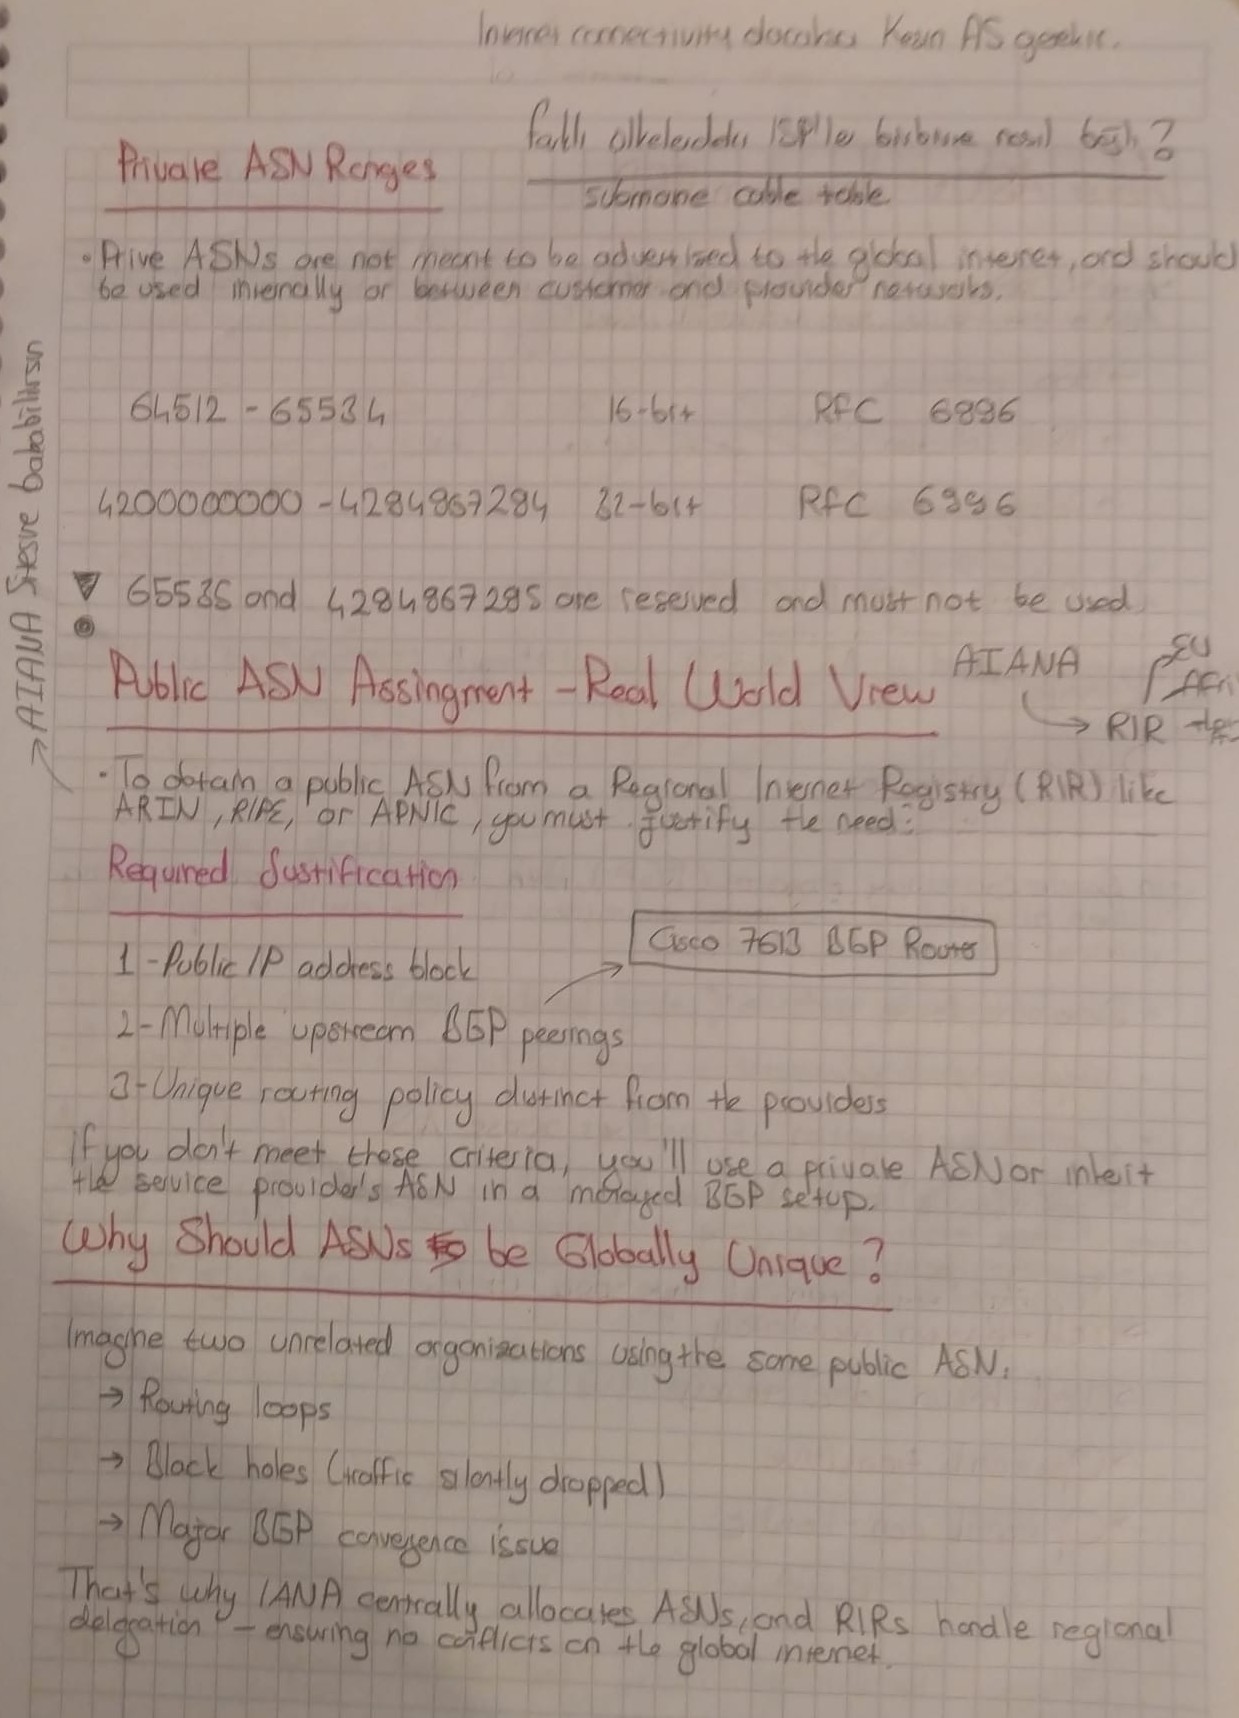 Internet connectivity Kesin AS gerekir.
farklı ülkelerdeki ISP'ler birbirine nasıl bağlı?
Private ASN Ranges
submarine cable table
• Prive ASNs are not meant to be advertised to the global internet, and should
be used internally or between customer and provider networks.
64512 - 65534 16-bit RFC 6996
4200000000 - 4294967294 32-bit RFC 6996
65535 and 4294967295 are reserved and must not be used
→ AIANA Sitesine bakabilirsin
Public ASN Assingment - Real World View
AIANA
→ RIR
EU
Afri
• To obtain a public ASN from a Regional Internet Registry (RIR) like
ARIN, RIPE, or APNIC, you must justify the need:
Required Justification
Cisco 7613 BGP Router
1 - Public IP address block
2 - Multiple upstream BGP peerings
3 - Unique routing policy distinct from the providers
if you don't meet these criteria, you'll use a private ASN or inherit
the service provider's ASN in a managed BGP setup.
Why Should ASNs be Globally Unique?
Imagine two unrelated organizations using the same public ASN.
→ Routing loops
→ Black holes (traffic silently dropped)
→ Major BGP convergence issue
That's why IANA centrally allocates ASNs, and RIRs handle regional
delegation - ensuring no conflicts on the global internet.